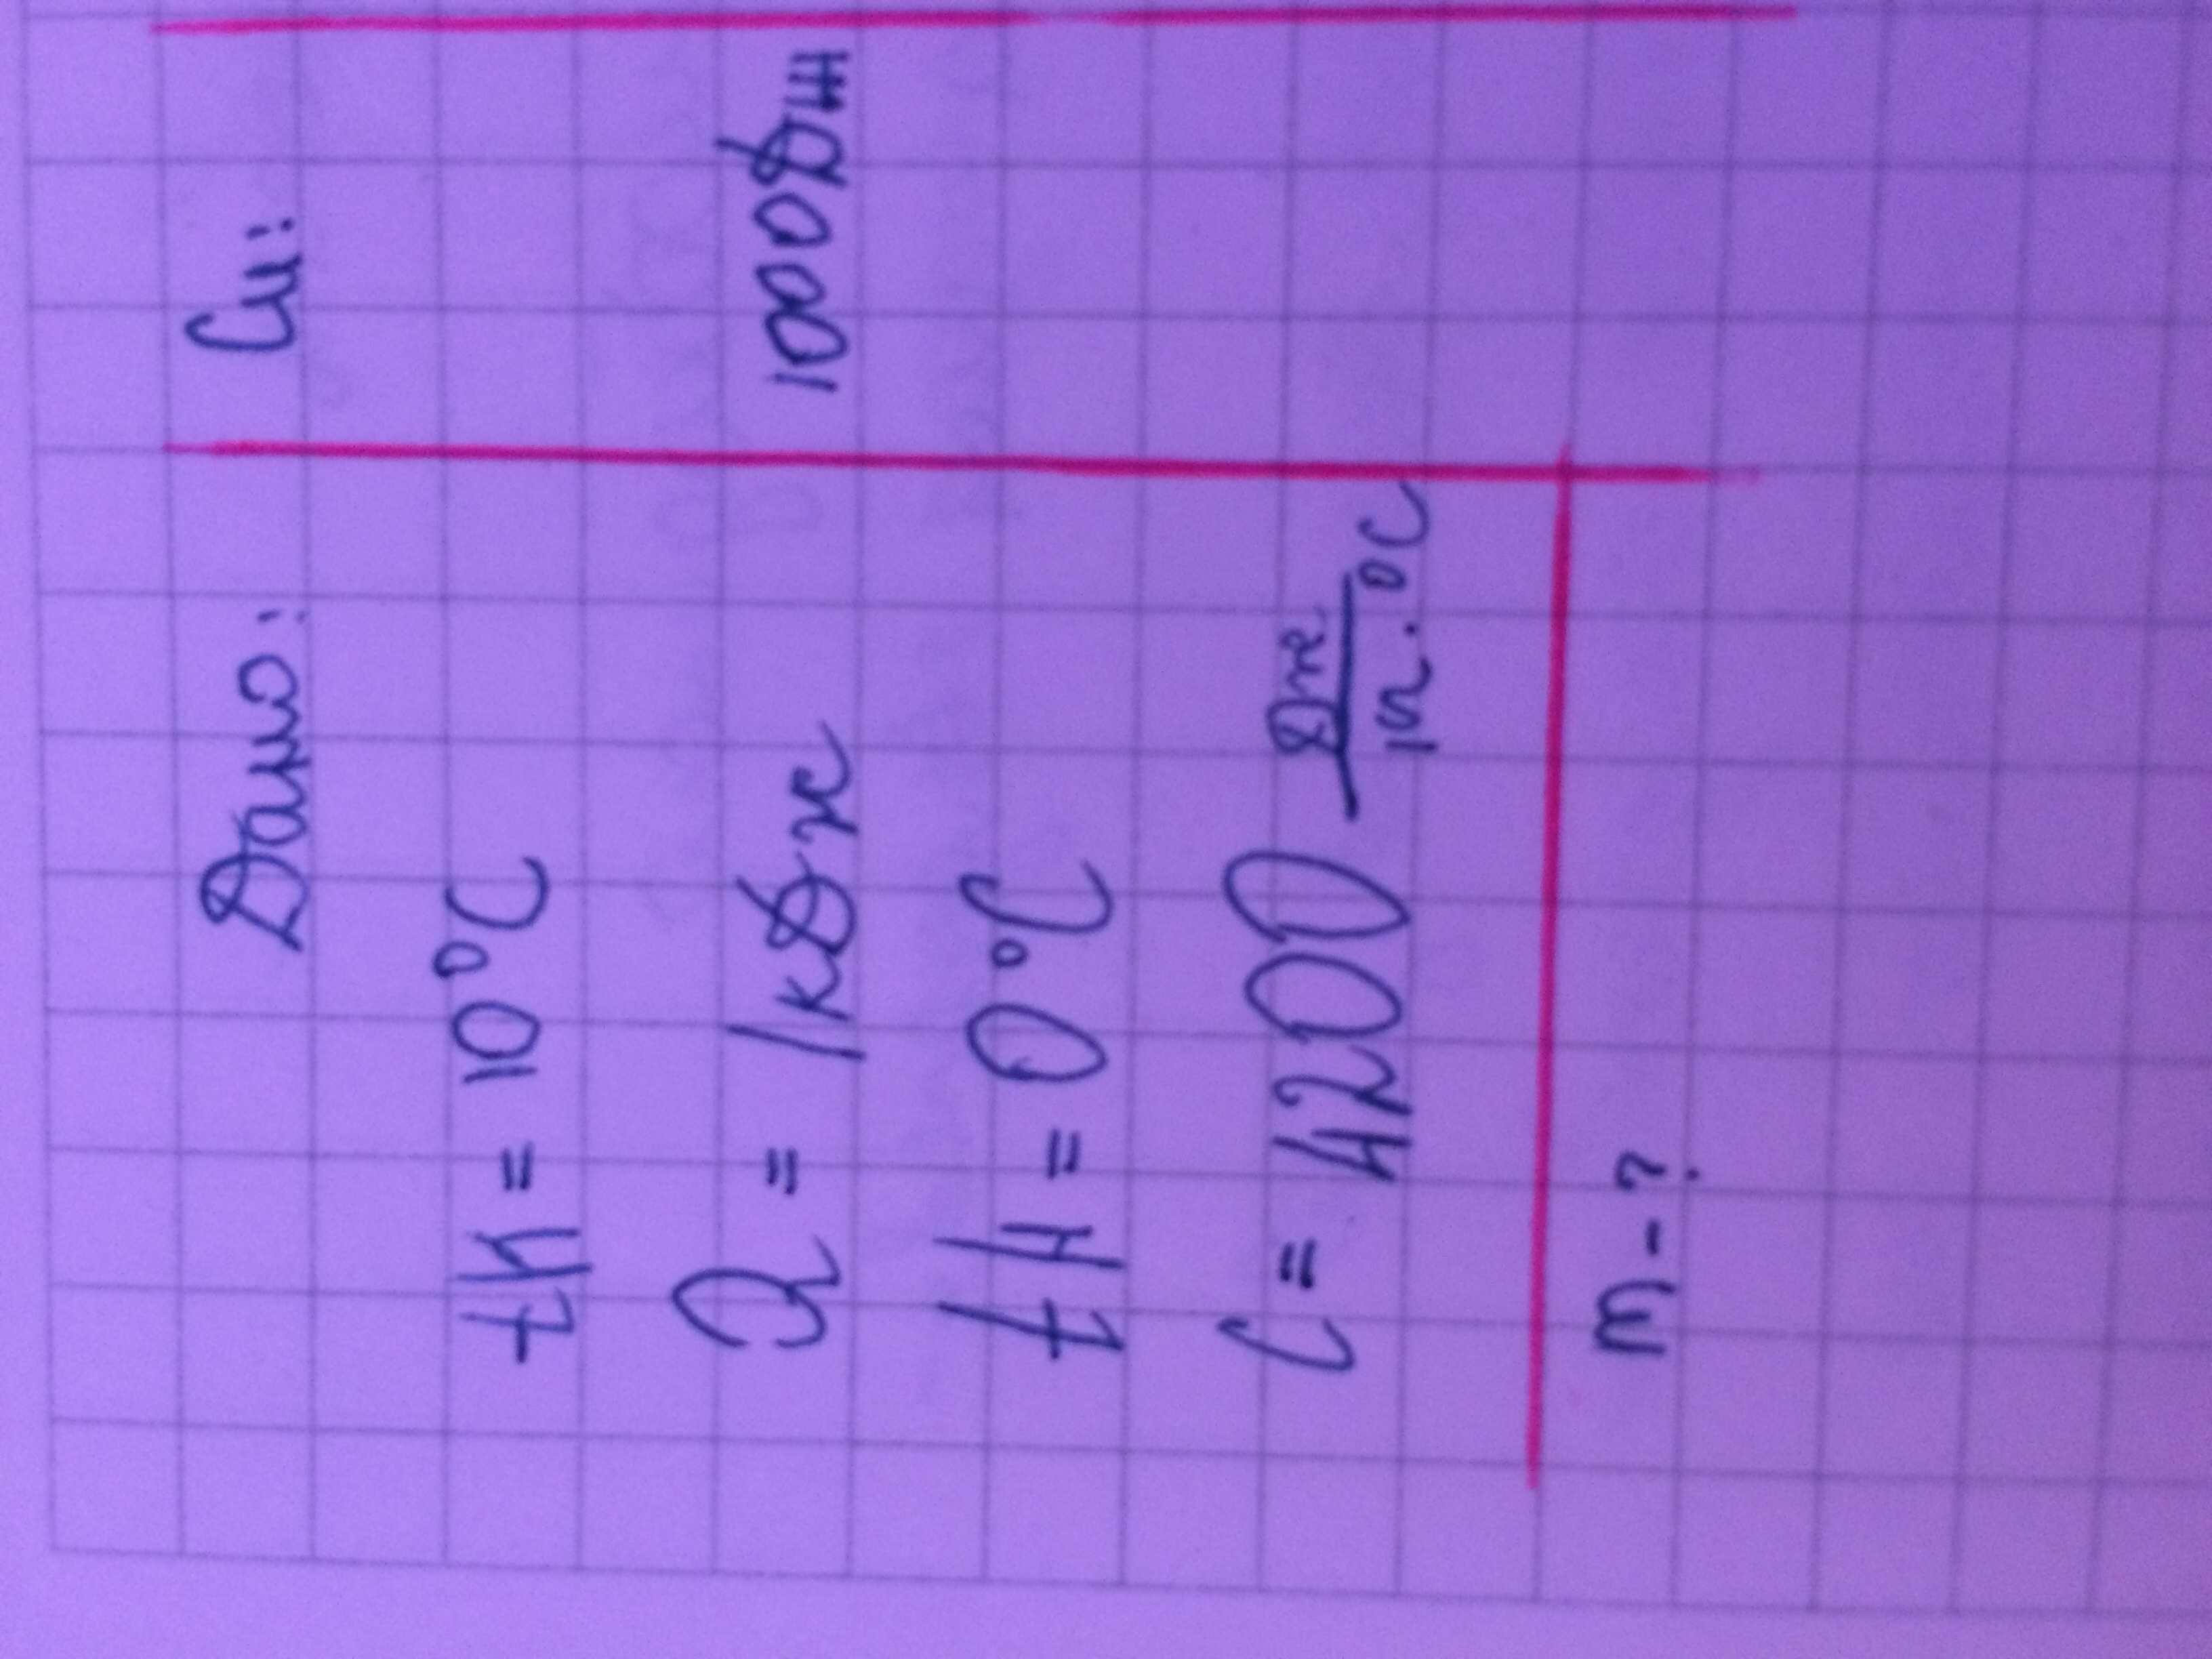 Дано: Си:
tк = 10°C
Q = 1кДж 1000Дж
tн = 0°C
C = 4200 Дж/кг·°C
m - ?